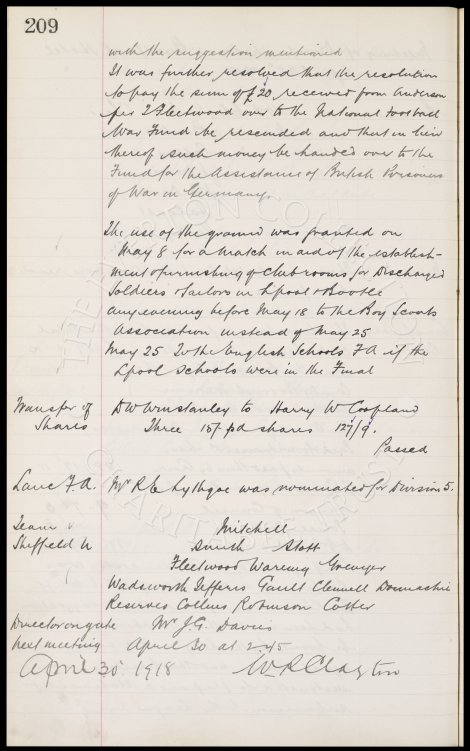 209
with the suggestion mentioned
It was further resolved that the resolution
to pay the sum of £20 received from Anderson
per T Fleetwood over to the National Football
War Fund be rescinded and that in lieu
thereof such money be handed over to the
Fund for the Assistance of British Prisoners
of War in Germany.
The use of the ground was granted on
May 8 for a match in aid of the establish-
ment & furnishing of Club rooms for Discharged
Soldiers & Sailors in Lpool & Bootle
any evening before May 18 to the Boy Scouts
Association instead of May 25
May 25 To the English Schools F A if the
Lpool Schools were in the Final
Transfer of D W Winstanley to Harry W Coopland
Shares Three 15/- pd shares 127/9.
Passed
Lanc F.A. Mr R E Lythgoe was nominated for Division 5.
Team v Mitchell
Sheffield U Smith Stott
Fleetwood Wareing Grenyer
Wadsworth Jefferis Gault Clennell Donnachie
Reserves Collins Robinson Cotter
Director on gate Mr J. G. Davies
Next meeting April 30 at 2-45
April 30 1918 W R Clayton
THE EVERTON COLLECTION
CHARITABLE TRUST